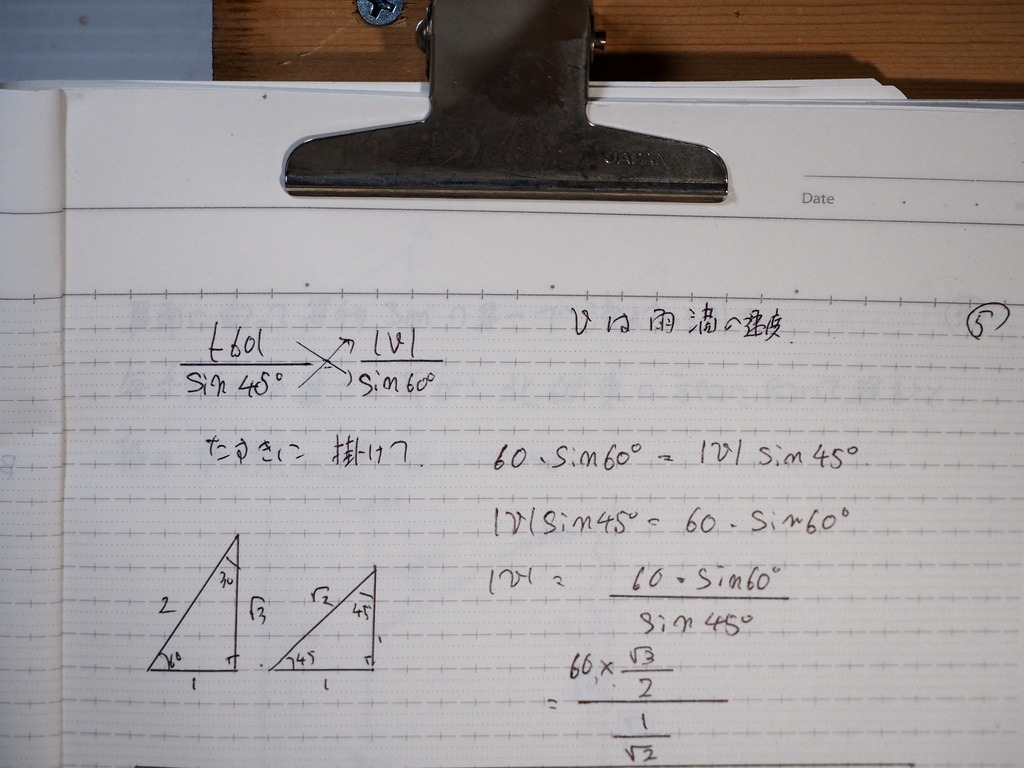 JAPAN
Date
vは雨滴の速度. ⑤
|-60| / sin 45° |v| / sin 60°
たすきに 掛けて.
60・sin60° = |v| sin 45°
|v| sin 45° = 60・sin60°
|v| = 60・sin60° / sin 45°
= 60 × √3/2 / 1/√2
2 30 √3 60 1
√2 45 1 45 1